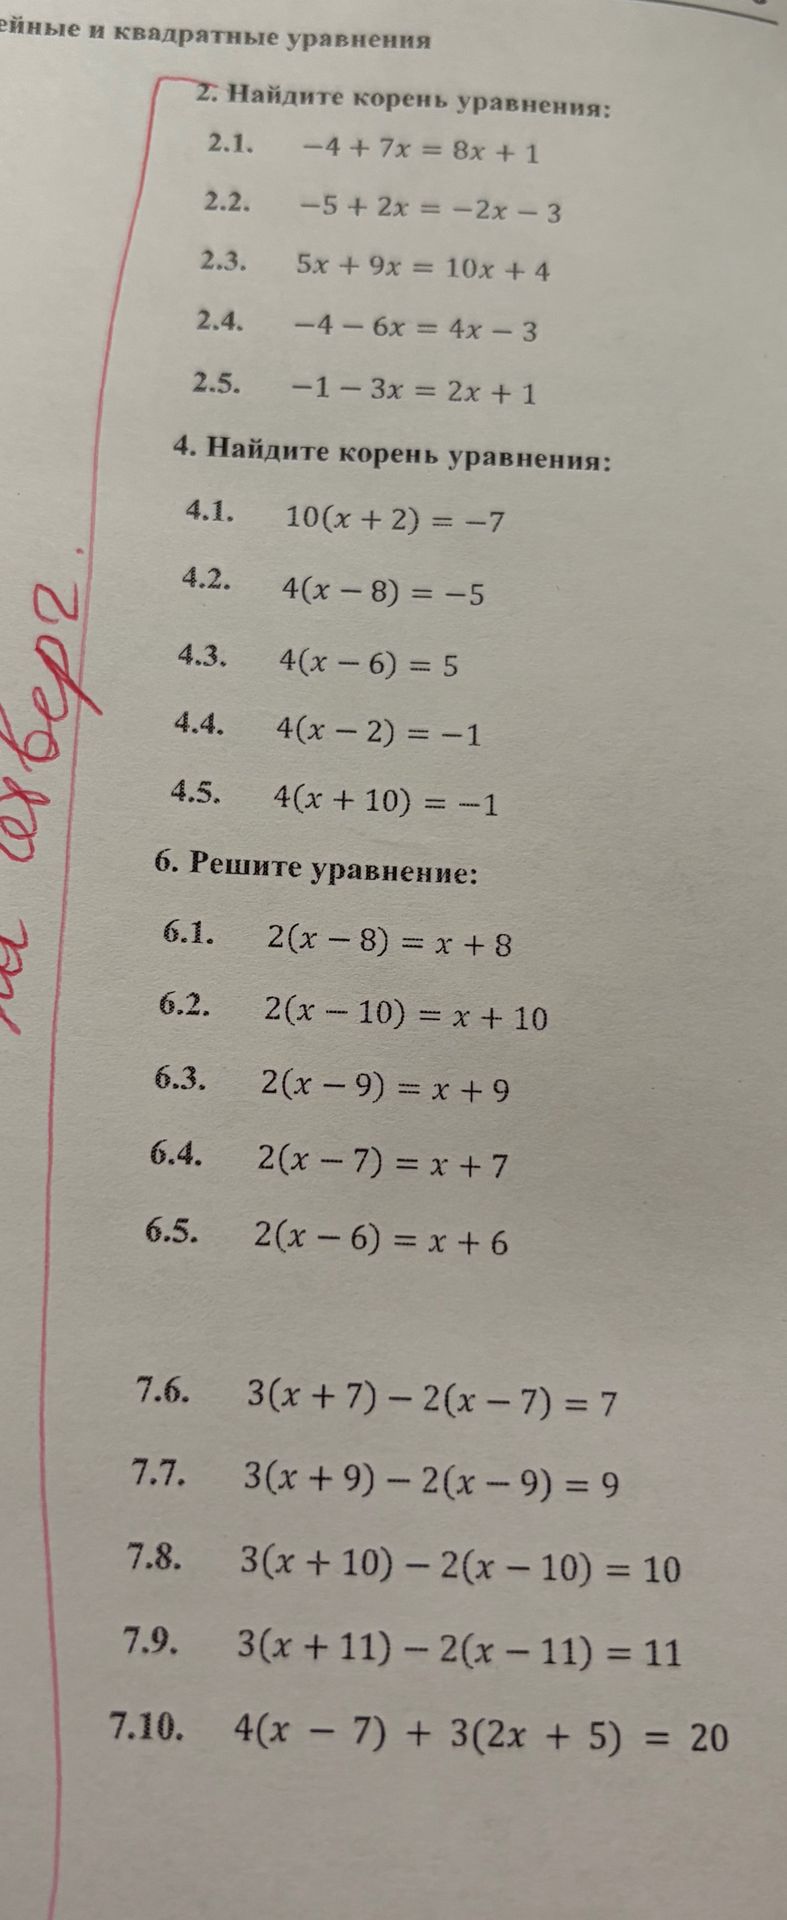 ейные и квадратные уравнения
2. Найдите корень уравнения:
2.1. −4 + 7x = 8x + 1
2.2. −5 + 2x = −2x − 3
2.3. 5x + 9x = 10x + 4
2.4. −4 − 6x = 4x − 3
2.5. −1 − 3x = 2x + 1
4. Найдите корень уравнения:
4.1. 10(x + 2) = −7
4.2. 4(x − 8) = −5
4.3. 4(x − 6) = 5
4.4. 4(x − 2) = −1
4.5. 4(x + 10) = −1
6. Решите уравнение:
6.1. 2(x − 8) = x + 8
6.2. 2(x − 10) = x + 10
6.3. 2(x − 9) = x + 9
6.4. 2(x − 7) = x + 7
6.5. 2(x − 6) = x + 6
7.6. 3(x + 7) − 2(x − 7) = 7
7.7. 3(x + 9) − 2(x − 9) = 9
7.8. 3(x + 10) − 2(x − 10) = 10
7.9. 3(x + 11) − 2(x − 11) = 11
7.10. 4(x − 7) + 3(2x + 5) = 20
на